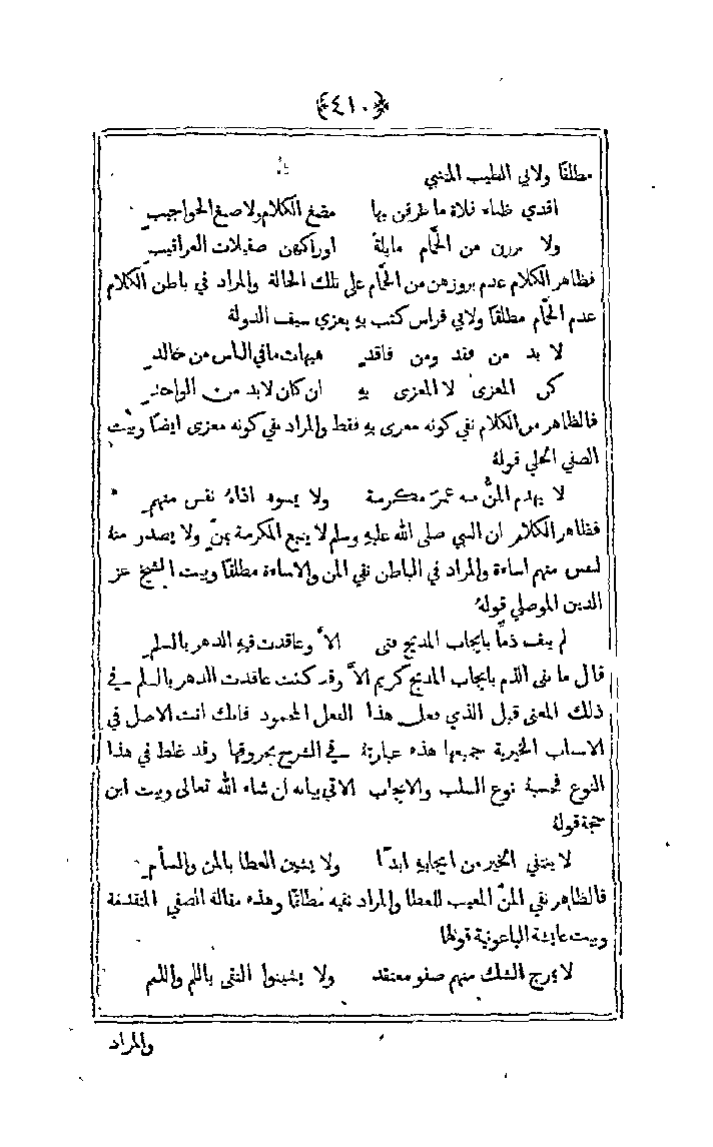 ﴿٤١٠﴾
مطلقًا ولابي الطيب المتنبي
افدي ظباء فلاة ما عرفن بها مضغ الكلام ولا صبغ الحواجيب
ولا برزن من الحمّام مايلةً اوراكهن صقيلات العراقيب
فظاهر الكلام عدم بروزهن من الحمّام على تلك الحالة والمراد في باطن الكلام
عدم الحمّام مطلقًا ولابي فراس كتب به يعزي سيف الدولة
لا بد من فقد ومن فاقد هيهات ما في الناس من خالد
كن المعزي لا المعزى به ان كان لابد من الواحد
فالظاهر من الكلام نفي كونه معزى به فقط والمراد نفي كونه معزى ايضًا وبيت
الصفي الحلي قولهُ
لا يهدم المنُّ منه عمرَ مكرمة ولا يسوء اذاهُ نفس منهم
فظاهر الكلام ان النبي صلى الله عليه وسلم لا يتبع المكرمة بمنٍّ ولا يصدر منه
لنفس منهم اساءة والمراد في الباطن نفي المن والاساءة مطلقًا وبيت الشيخ عز
الدين الموصلي قولهُ
لم ينف ذمًّا بايجاب المديح فتى الاَّ وعاقدت فيه الدهر بالسلم
قال ما نفى الذم بايجاب المديح كريم الاَّ وقد كنت عاقدت الدهر بالسلم في
ذلك المعنى قبل الذي فعل هذا الفعل المحمود فانك انت الاصل في
الاسباب الخيرية جميعها هذه عبارتهُ في الشرح بحروفها وقد غلط في هذا
النوع فحسبهُ نوع السلب والايجاب الاتي بيانه ان شاء الله تعالى وبيت ابن
حجة قولهُ
لا ينتفي الخير من ايجابه ابدًا ولا يشين العطا بالمن والسأم
فالظاهر نفي المنّ المعيب للعطا والمراد نفيه مطلقًا وهذه مقالة الصفي المتقدمة
وبيت عايشة الباعونية قولها
لا يمزج الشك منهم صفو معتقد ولا يشينوا التقى باللم واللمم
والمراد